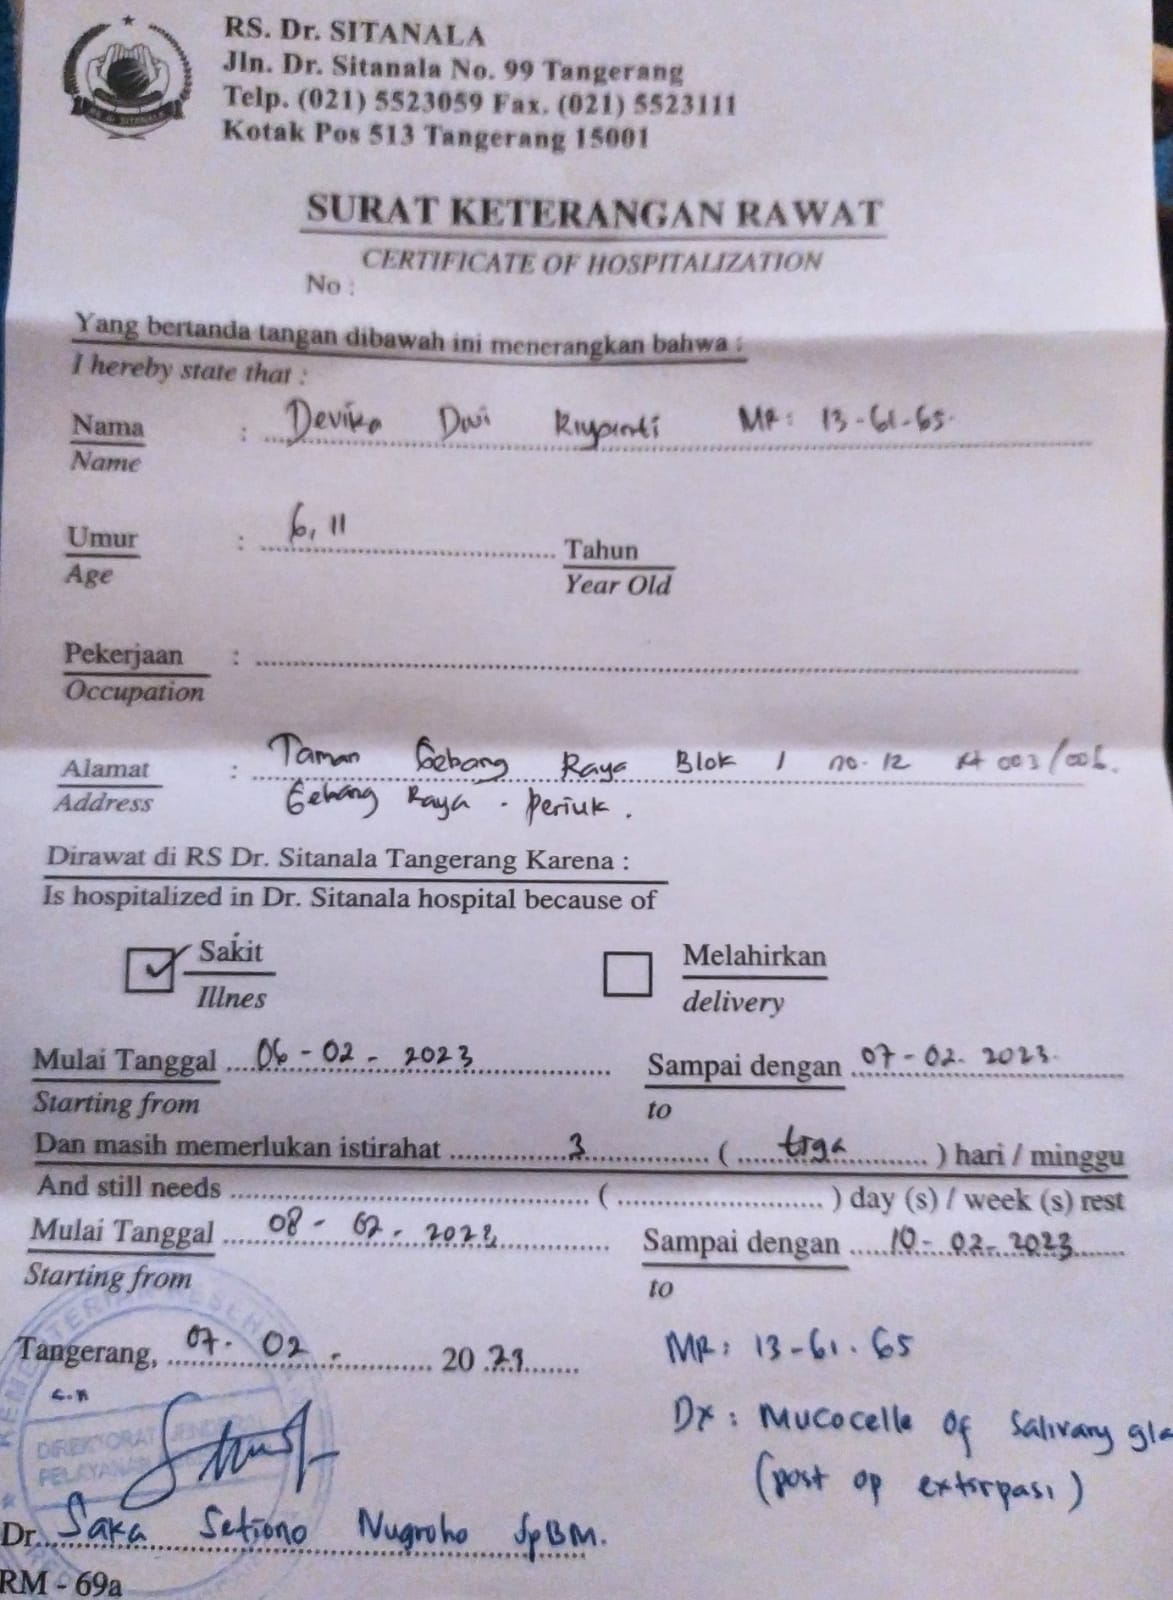 RS. Dr. SITANALA
Jln. Dr. Sitanala No. 99 Tangerang
Telp. (021) 5523059 Fax. (021) 5523111
Kotak Pos 513 Tangerang 15001
RS dr SITANALA
SURAT KETERANGAN RAWAT
CERTIFICATE OF HOSPITALIZATION
No :
Yang bertanda tangan dibawah ini menerangkan bahwa :
I hereby state that :
Nama : Devika Dwi Riyanti MR : 13-61-65.
Name
Umur : 6,11 Tahun
Age Year Old
Pekerjaan :
Occupation
Alamat : Taman Gebang Raya Blok 1 no. 12 rt 003/006.
Address Gebang Raya - Periuk.
Dirawat di RS Dr. Sitanala Tangerang Karena :
Is hospitalized in Dr. Sitanala hospital because of
Sakit Melahirkan
Illnes delivery
Mulai Tanggal 06-02-2023 Sampai dengan 07-02-2023
Starting from to
Dan masih memerlukan istirahat 3 ( tiga ) hari / minggu
And still needs ( ) day (s) / week (s) rest
Mulai Tanggal 08-02-2023 Sampai dengan 10-02-2023
Starting from to
Tangerang, 07-02- 2023 MR : 13-61.65
Dx : Mucocelle Of Salivary gla
DIREKTORAT JENDERAL
PELAYANAN
(post op extirpasi)
Dr. Saka Setiono Nugroho SpBM.
RM - 69a